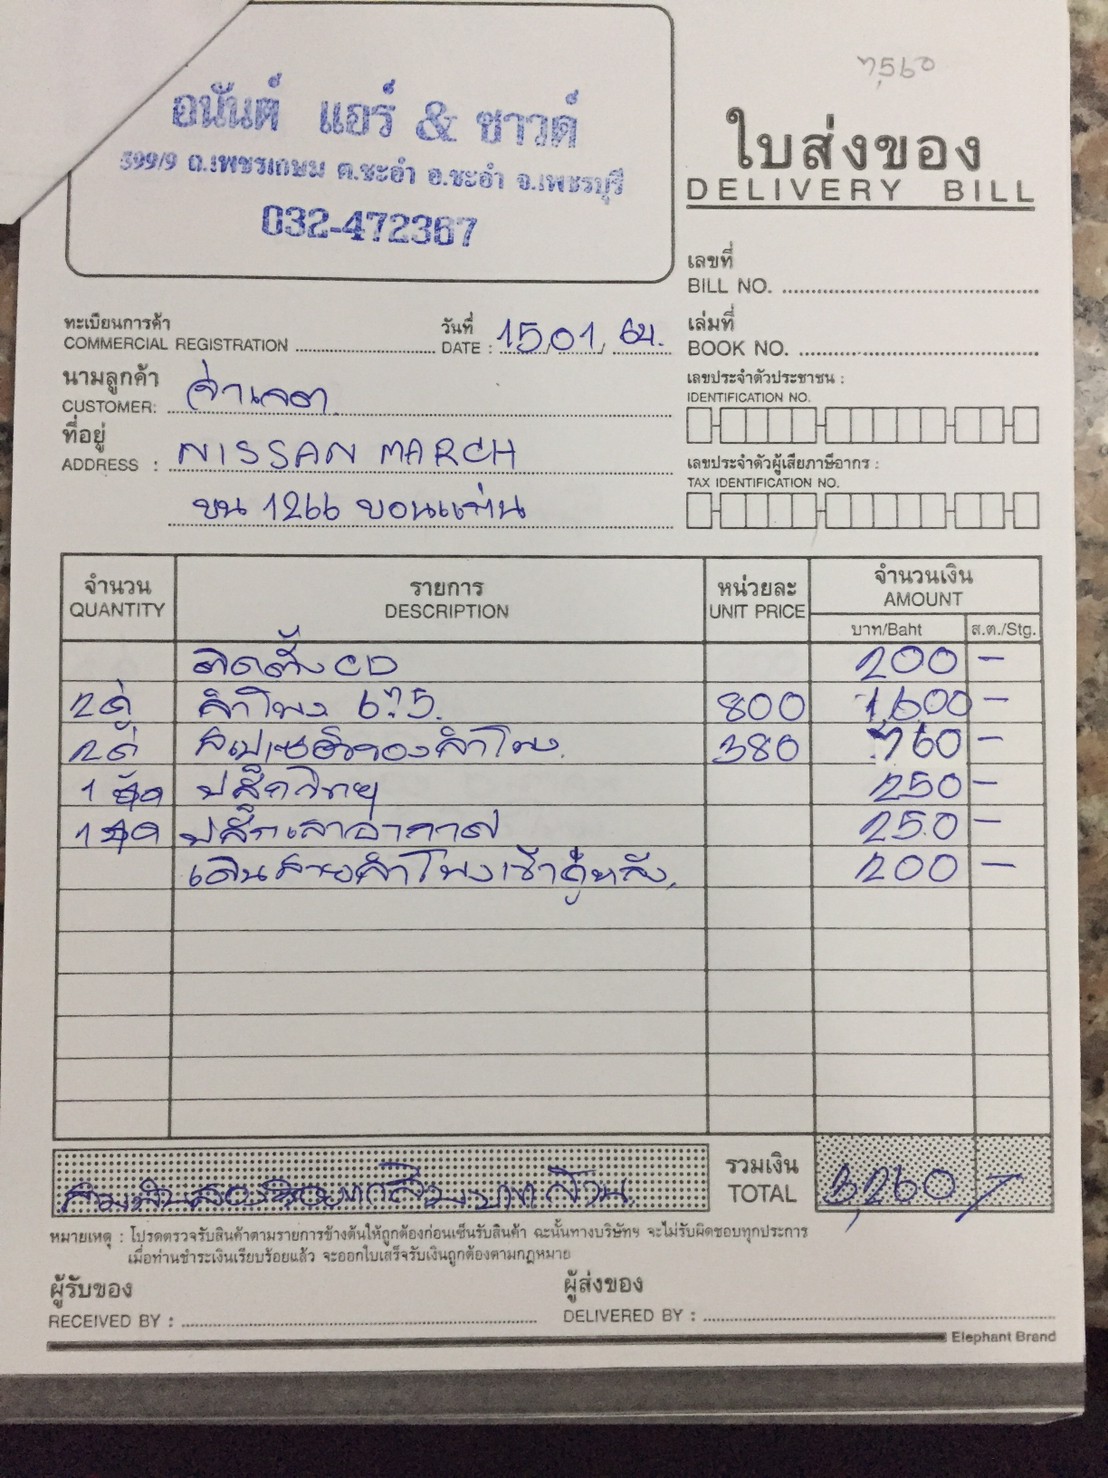 7,560
อนันต์ แอร์ & ซาวด์
399/9 ถ.เพชรเกษม ต.ชะอำ อ.ชะอำ จ.เพชรบุรี
032-472367
ใบส่งของ
DELIVERY BILL
เลขที่
BILL NO.
ทะเบียนการค้า
COMMERCIAL REGISTRATION
วันที่
DATE : 15,01, 64.
เล่มที่
BOOK NO.
นามลูกค้า
CUSTOMER: จ่าเจต
ที่อยู่
ADDRESS : NISSAN MARCH
ขน 1266 ขอนแก่น
เลขประจำตัวประชาชน :
IDENTIFICATION NO.
เลขประจำตัวผู้เสียภาษีอากร :
TAX IDENTIFICATION NO.
จำนวน รายการ หน่วยละ จำนวนเงิน
QUANTITY DESCRIPTION UNIT PRICE AMOUNT
บาท/Baht ส.ต./Stg.
ติดตั้ง CD 200 -
2คู่ ลำโพง 6.5. 800 1,600 -
2คู่ สเปเซอร์รองลำโพง. 380 760 -
1 ชุด ปลั๊กวิทยุ 250 -
1ชุด ปลั๊กเสาอากาศ 250 -
เดินสายลำโพงเข้าคู่หลัง. 200 -
สามพันสองร้อยหกสิบบาทถ้วน.
รวมเงิน
TOTAL 3,260 -
หมายเหตุ : โปรดตรวจรับสินค้าตามรายการข้างต้นให้ถูกต้องก่อนเซ็นรับสินค้า ฉะนั้นทางบริษัทฯ จะไม่รับผิดชอบทุกประการ
เมื่อท่านชำระเงินเรียบร้อยแล้ว จะออกใบเสร็จรับเงินถูกต้องตามกฎหมาย
ผู้รับของ
RECEIVED BY :
ผู้ส่งของ
DELIVERED BY :
Elephant Brand